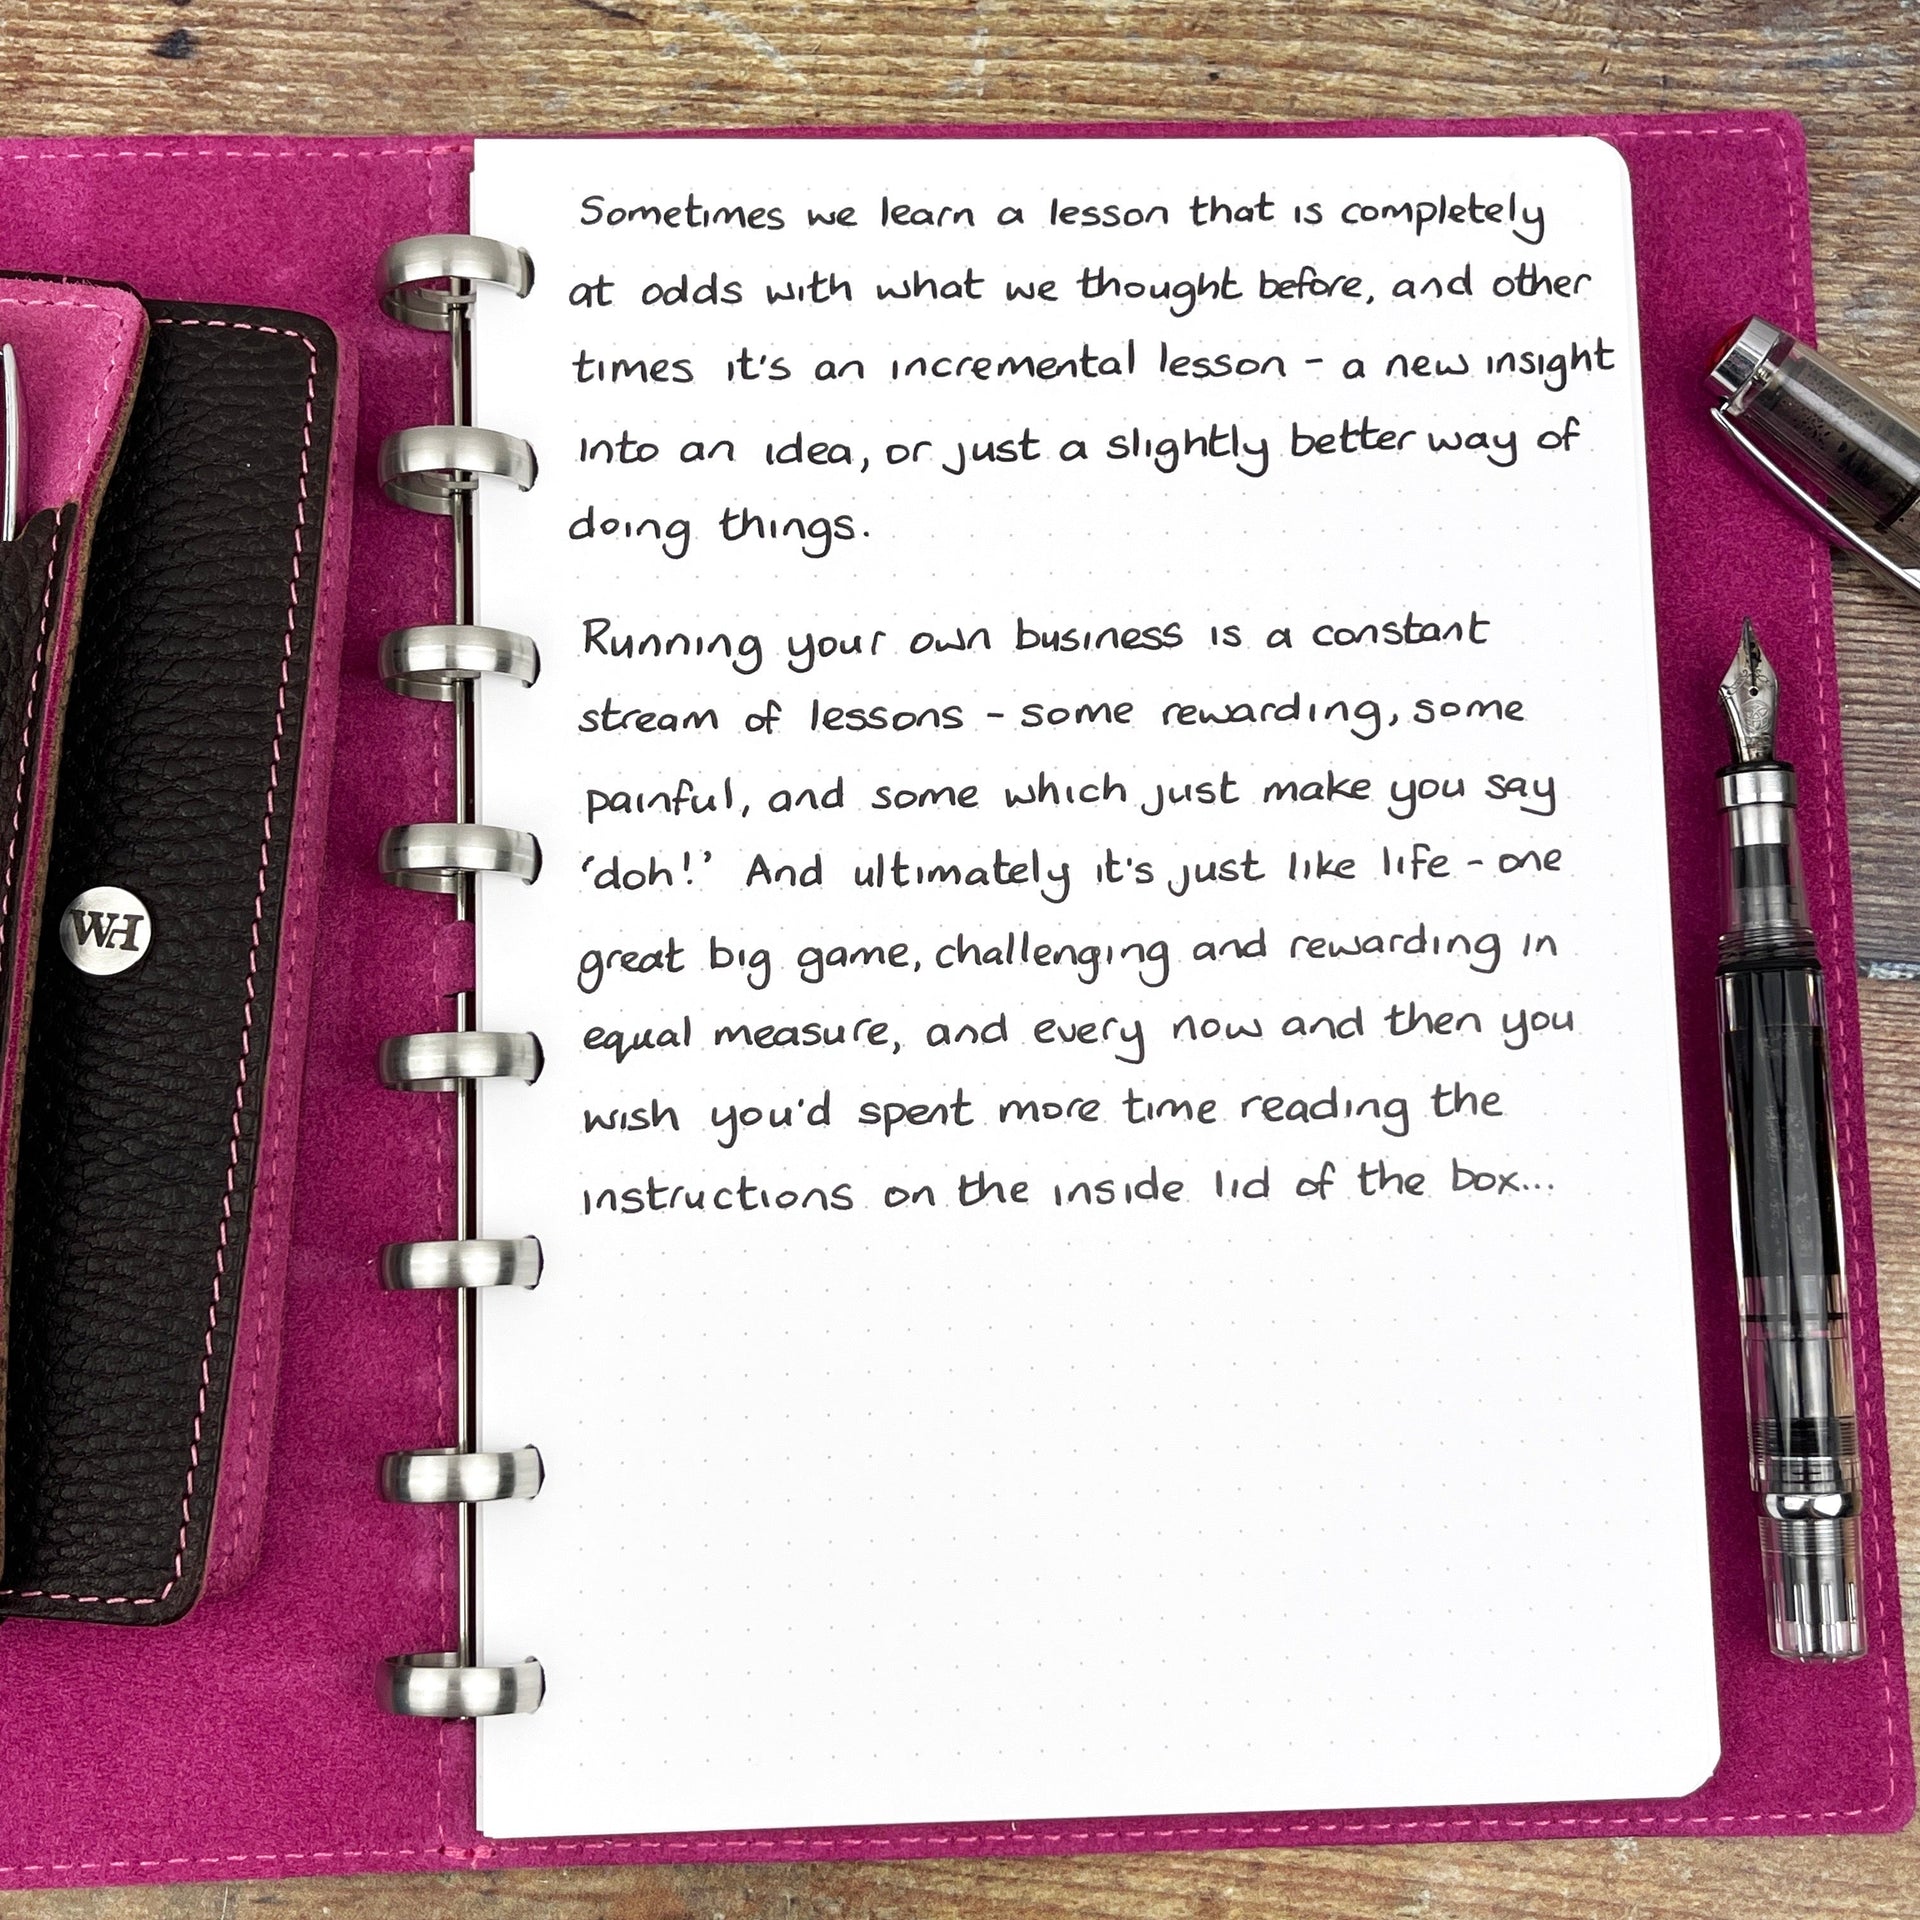 Sometimes we learn a lesson that is completely
at odds with what we thought before, and other
times it's an incremental lesson - a new insight
into an idea, or just a slightly better way of
doing things.
Running your own business is a constant
stream of lessons - some rewarding, some
painful, and some which just make you say
'doh!' And ultimately it's just like life - one
great big game, challenging and rewarding in
equal measure, and every now and then you
wish you'd spent more time reading the
instructions on the inside lid of the box...
WH